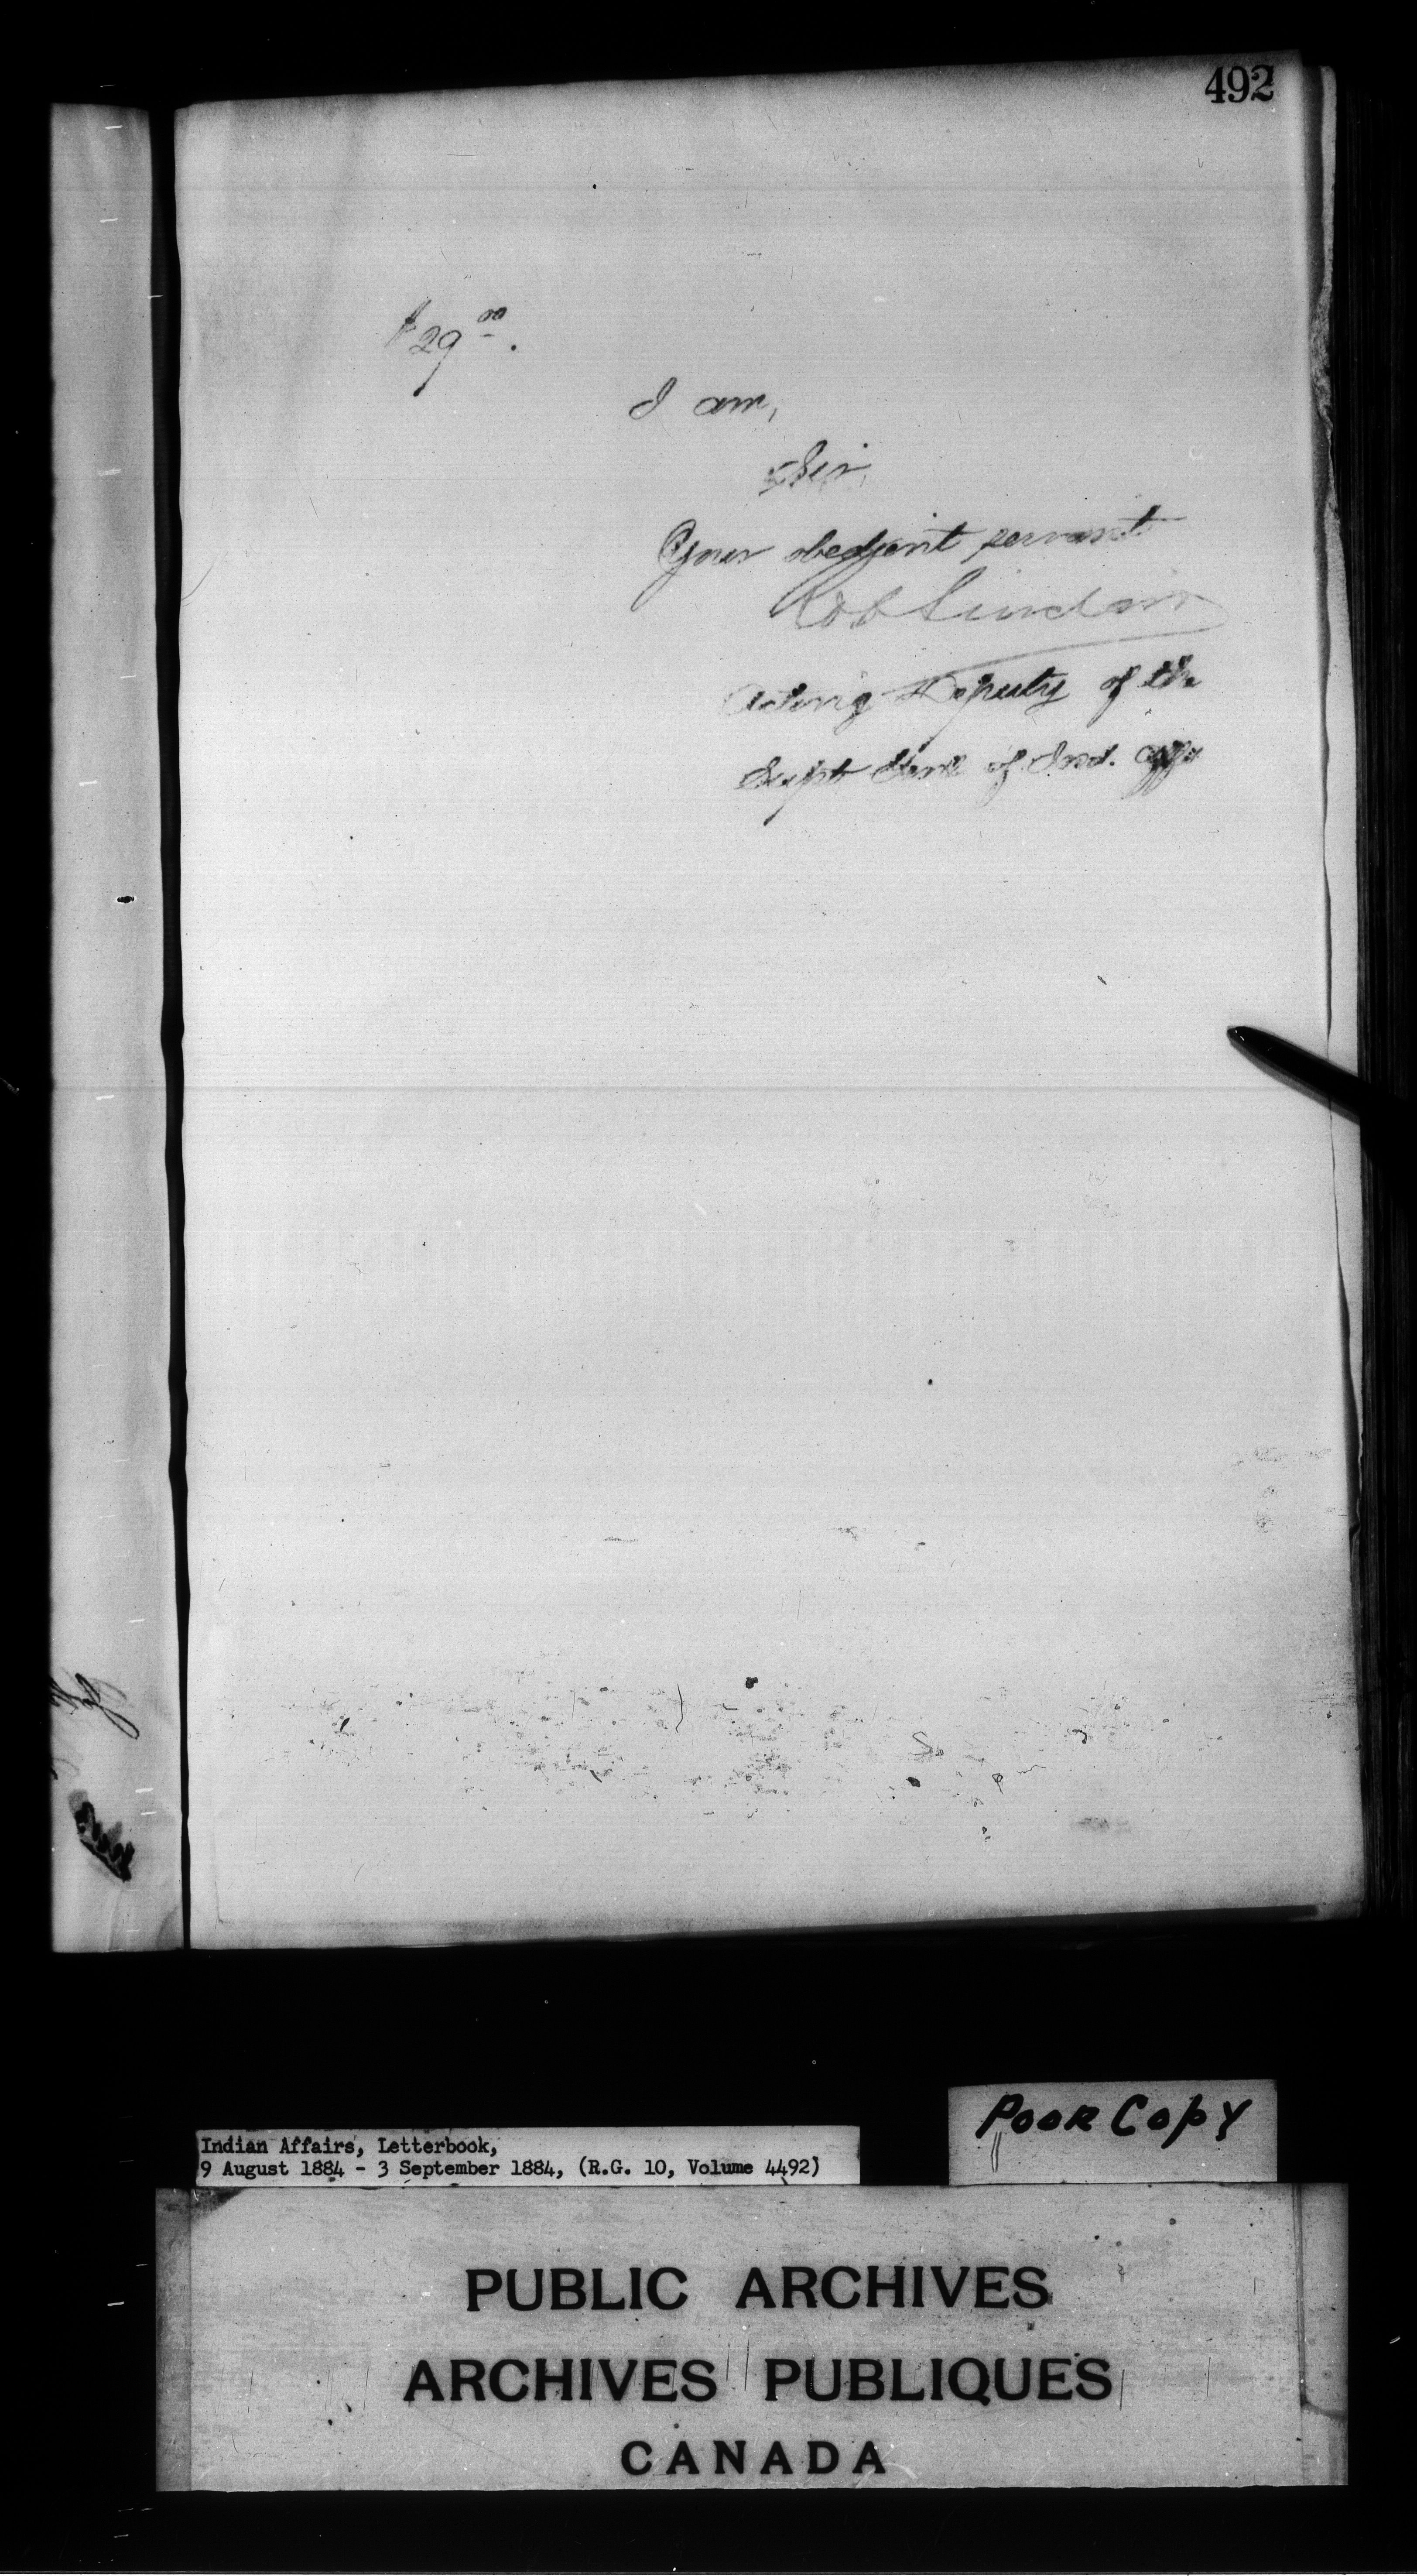 492
$29.00.
I am,
Sir,
Your obedient servant
Rob Sinclair
Acting Deputy of the
Supt Genl of Ind. Affrs
Poor Copy
Indian Affairs, Letterbook,
9 August 1884 - 3 September 1884, (R.G. 10, Volume 4492)
PUBLIC ARCHIVES
ARCHIVES PUBLIQUES
CANADA